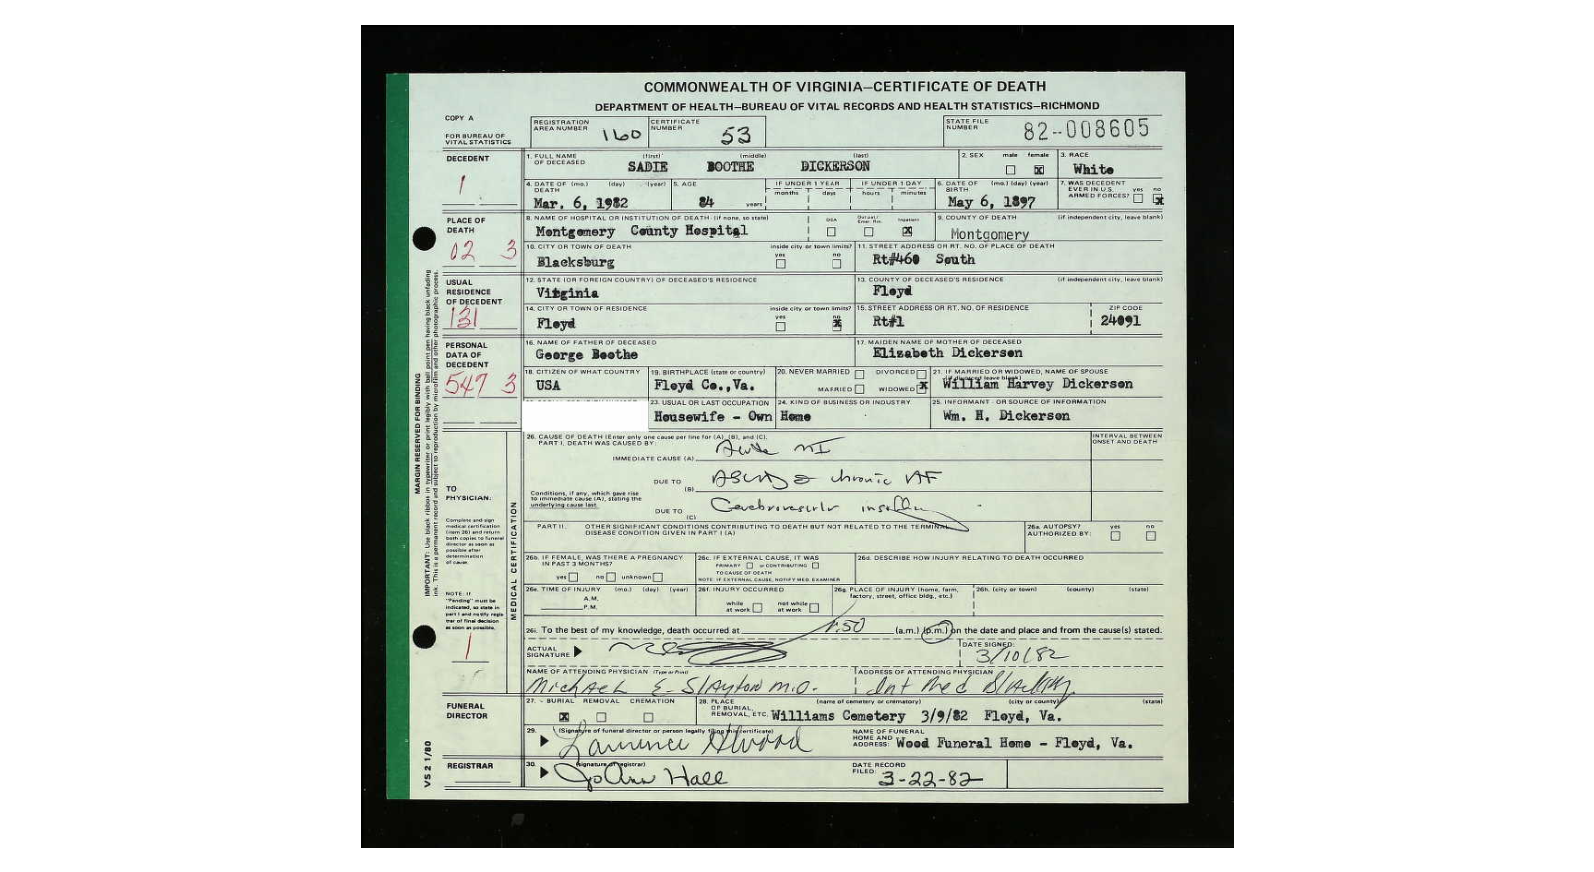 COMMONWEALTH OF VIRGINIA—CERTIFICATE OF DEATH
DEPARTMENT OF HEALTH—BUREAU OF VITAL RECORDS AND HEALTH STATISTICS—RICHMOND
COPY A
FOR BUREAU OF VITAL STATISTICS
REGISTRATION AREA NUMBER 160 CERTIFICATE NUMBER 53 STATE FILE NUMBER 82-008605
DECEDENT
1
1. FULL NAME OF DECEASED (first) (middle) (last) 2. SEX male female 3. RACE
SADIE BOOTHE DICKERSON X White
4. DATE OF DEATH (mo.) (day) (year) 5. AGE IF UNDER 1 YEAR months days IF UNDER 1 DAY hours minutes 6. DATE OF BIRTH (mo.) (day) (year) 7. WAS DECEDENT EVER IN U.S. ARMED FORCES? yes no
Mar. 6, 1982 84 years May 6, 1897 X
PLACE OF DEATH
02 3
8. NAME OF HOSPITAL OR INSTITUTION OF DEATH (if none, so state) DOA Inpatient 9. COUNTY OF DEATH (if independent city, leave blank)
Montgomery County Hospital X Montgomery
10. CITY OR TOWN OF DEATH inside city or town limits? yes no 11. STREET ADDRESS OR RT. NO. OF PLACE OF DEATH
Blacksburg Rt#460 South
USUAL RESIDENCE OF DECEDENT
131
12. STATE (OR FOREIGN COUNTRY) OF DECEASED'S RESIDENCE 13. COUNTY OF DECEASED'S RESIDENCE (if independent city, leave blank)
Virginia Floyd
14. CITY OR TOWN OF RESIDENCE inside city or town limits? yes no 15. STREET ADDRESS OR RT. NO. OF RESIDENCE ZIP CODE
Floyd X Rt#1 24091
PERSONAL DATA OF DECEDENT
547 3
16. NAME OF FATHER OF DECEASED 17. MAIDEN NAME OF MOTHER OF DECEASED
George Boothe Elizabeth Dickerson
18. CITIZEN OF WHAT COUNTRY 19. BIRTHPLACE (state or country) 20. NEVER MARRIED DIVORCED MARRIED WIDOWED X 21. IF MARRIED OR WIDOWED, NAME OF SPOUSE
USA Floyd Co.,Va. William Harvey Dickerson
23. USUAL OR LAST OCCUPATION 24. KIND OF BUSINESS OR INDUSTRY 25. INFORMANT - OR SOURCE OF INFORMATION
Housewife - Own Home Wm. H. Dickerson
MARGIN RESERVED FOR BINDING
IMPORTANT: Use black ribbon in typewriter or print legibly with ball point pen having black unfading
ink. This is a permanent record and subject to reproduction by microfilm and other photographic process.
TO PHYSICIAN:
Complete and sign
medical certification
(item 26) and return
both copies to funeral
director as soon as
possible after
determination
of cause.
NOTE: If
"Pending" must be
indicated, so state in
part I and notify regis-
trar of final decision
as soon as possible.
1
MEDICAL CERTIFICATION
26. CAUSE OF DEATH (Enter only one cause per line for (A), (B), and (C). INTERVAL BETWEEN ONSET AND DEATH
PART I. DEATH WAS CAUSED BY:
IMMEDIATE CAUSE (A) Acute MI
DUE TO (B) ASCVD chronic AF
Conditions, if any, which gave rise
to immediate cause (A), stating the
underlying cause last.
DUE TO (C)
PART II. OTHER SIGNIFICANT CONDITIONS CONTRIBUTING TO DEATH BUT NOT RELATED TO THE TERMINAL
DISEASE CONDITION GIVEN IN PART I (A)
26a. AUTOPSY? AUTHORIZED BY: yes no
26b. IF FEMALE, WAS THERE A PREGNANCY IN PAST 3 MONTHS? yes no unknown
26c. IF EXTERNAL CAUSE, IT WAS PRIMARY or CONTRIBUTING TO CAUSE OF DEATH
NOTE: IF EXTERNAL CAUSE, NOTIFY MED. EXAMINER
26d. DESCRIBE HOW INJURY RELATING TO DEATH OCCURRED
26e. TIME OF INJURY (mo.) (day) (year) A.M. P.M.
26f. INJURY OCCURRED while at work not while at work
26g. PLACE OF INJURY (home, farm, factory, street, office bldg., etc.)
26h. (city or town) (county) (state)
26i. To the best of my knowledge, death occurred at 1:50 (a.m.) (p.m.) on the date and place and from the cause(s) stated.
ACTUAL SIGNATURE DATE SIGNED: 3/10/82
NAME OF ATTENDING PHYSICIAN (Type or Print) ADDRESS OF ATTENDING PHYSICIAN
Michael E. Slayton M.D. Int Med
FUNERAL DIRECTOR
27. - BURIAL REMOVAL CREMATION 28. PLACE OF BURIAL, REMOVAL, ETC. (name of cemetery or crematory) (city or county) (state)
X Williams Cemetery 3/9/82 Floyd, Va.
29. (Signature of funeral director or person legally filing this certificate) NAME OF FUNERAL HOME AND ADDRESS:
Laurence Atwood Wood Funeral Home - Floyd, Va.
REGISTRAR
30. (signature of registrar) DATE RECORD FILED:
JoAnn Hall 3-22-82
VS 2 1/80